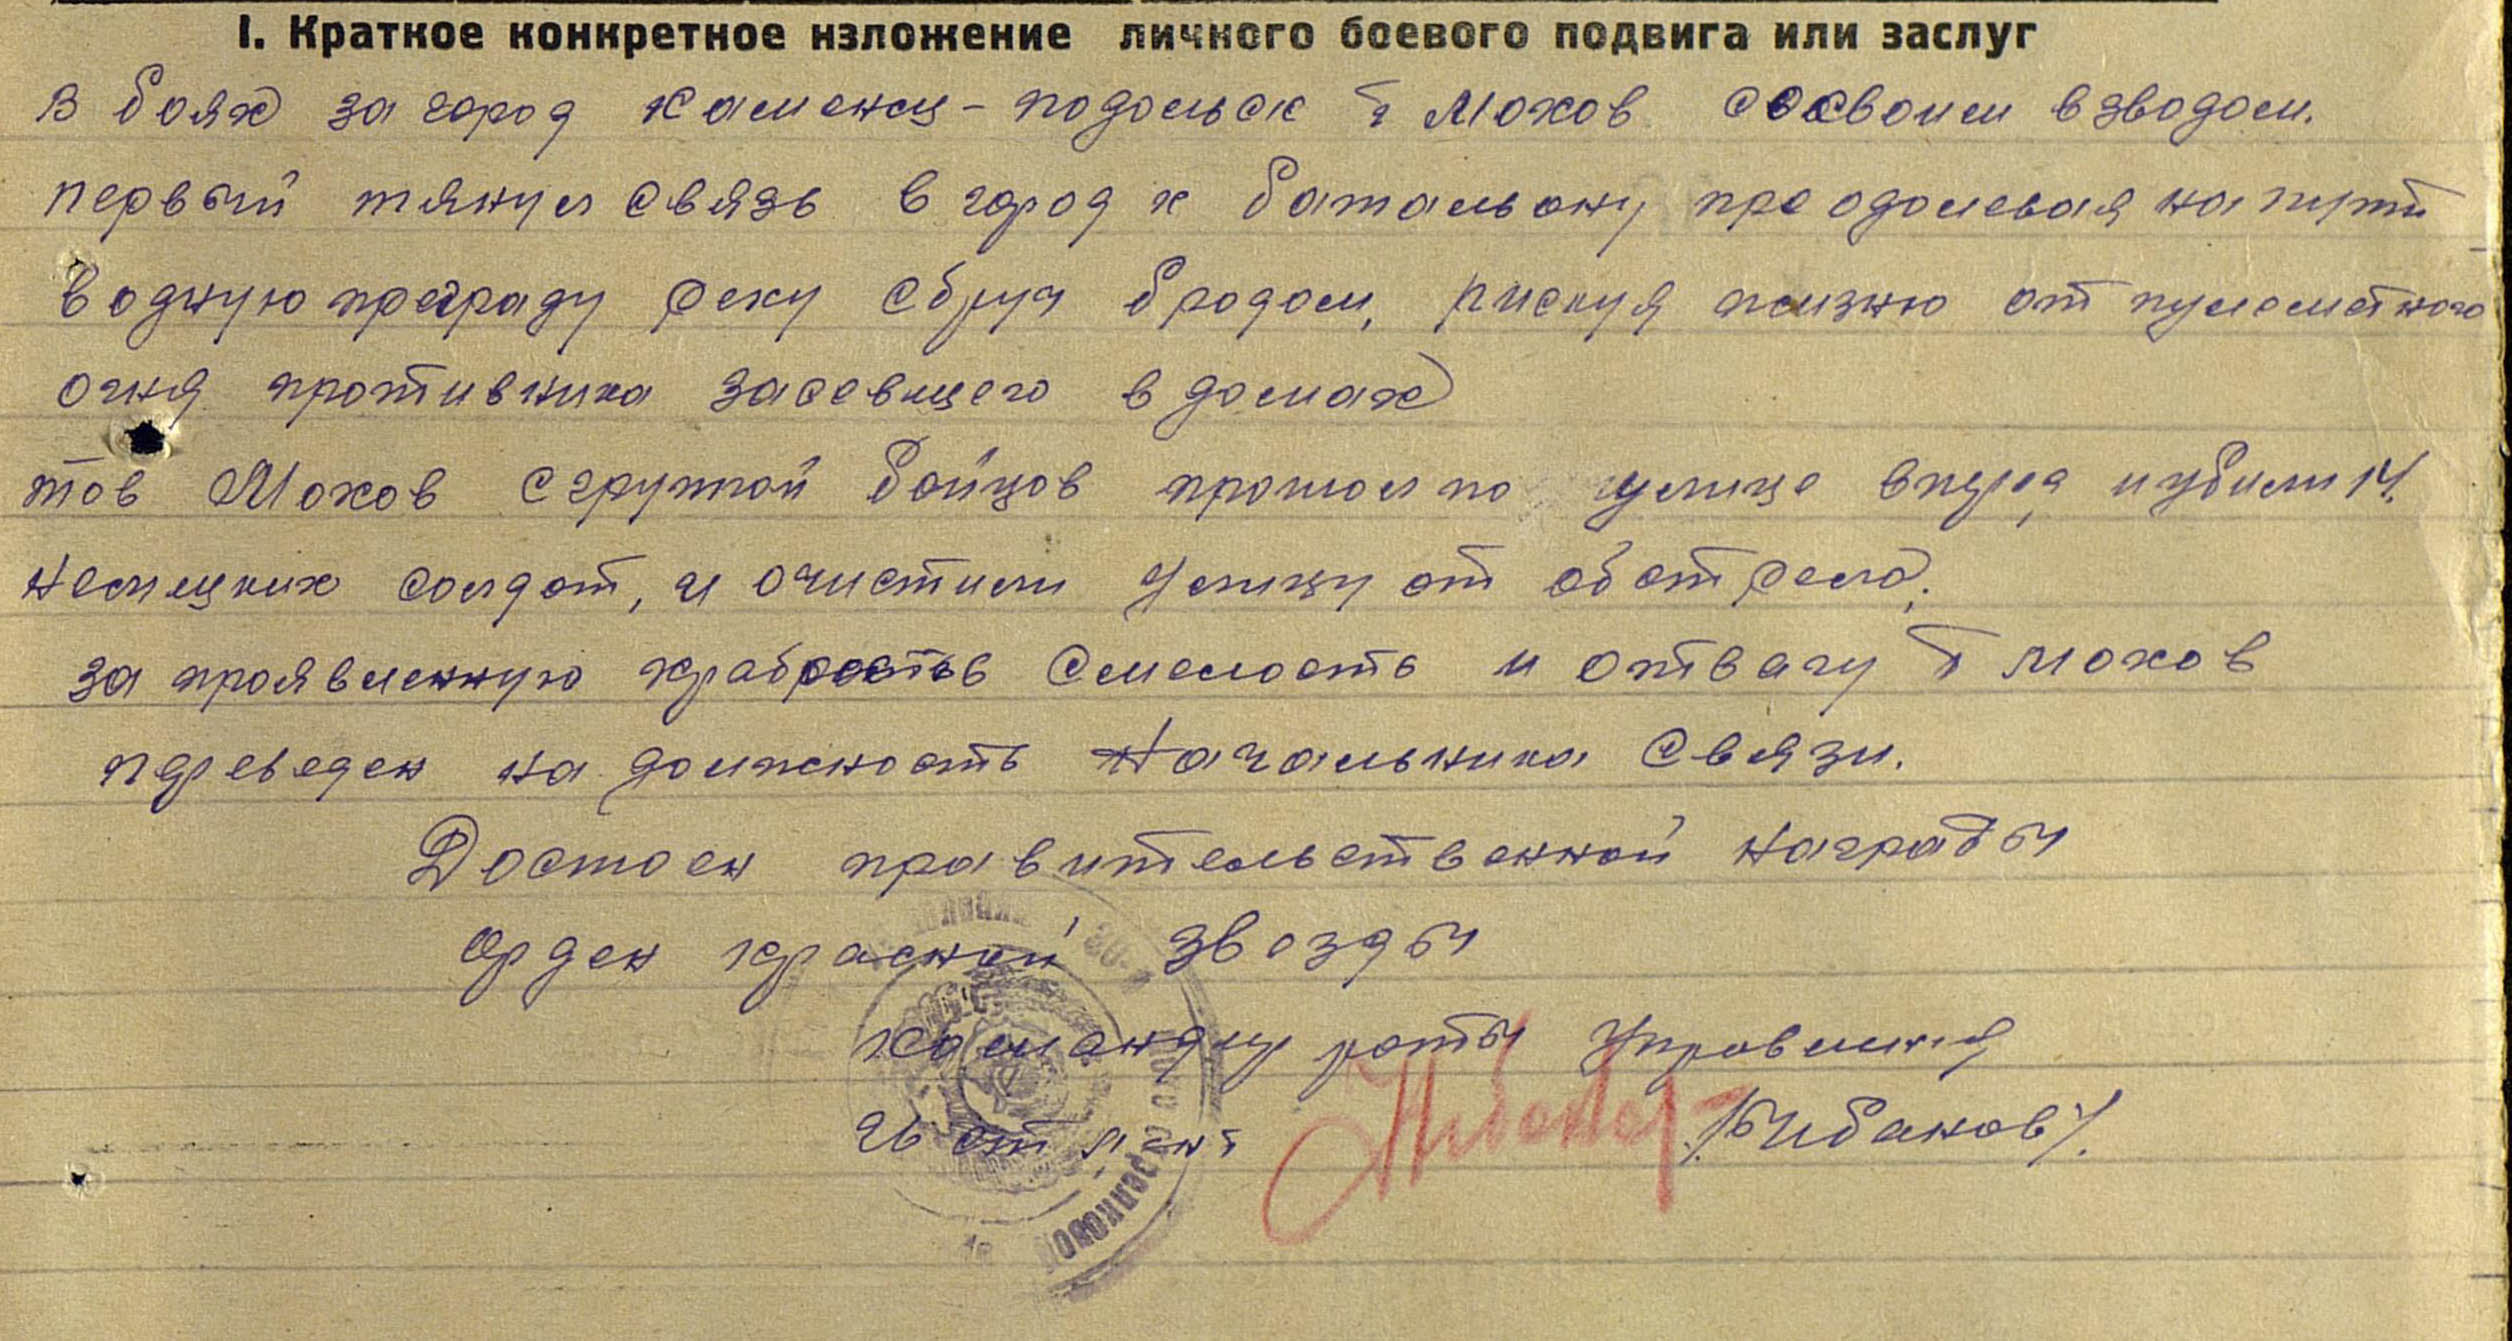 I. Краткое конкретное изложение личного боевого подвига или заслуг
В боях за город Каменец-Подольск т Мохов со своим взводом.
первый тянул связь в город к батальону преодолевая на пути
водную преграду реку Сбруч бродом, рискуя жизню от пулеметного
огня противника засевшего в домах
тов Мохов с групой бойцов прошол по улице вперед и убили 14.
немецких солдат, и очистили улицу от обстрела.
за проявленную храбрость смелость и отвагу т Мохов
переведен на должность Начальника Связи.
Достоен правительственной награды
Орден красной звезды
Командир роты Управления
Чибанов